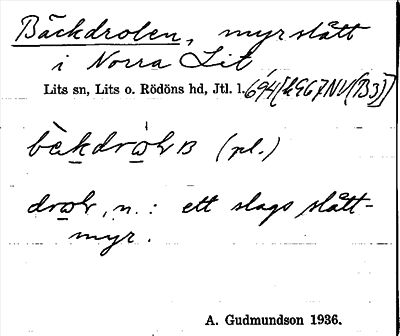 Bäckdrolen, myrslått
i Norra Lit
Lits sn, Lits o. Rödöns hd, Jtl. l.
bèkdròɷlɐ (pl.)
n.: ett slags slått-
myr.
A. Gudmundson 1936.